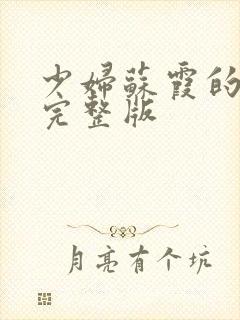 少婦蘇霞的
完整版
月亮有个坑